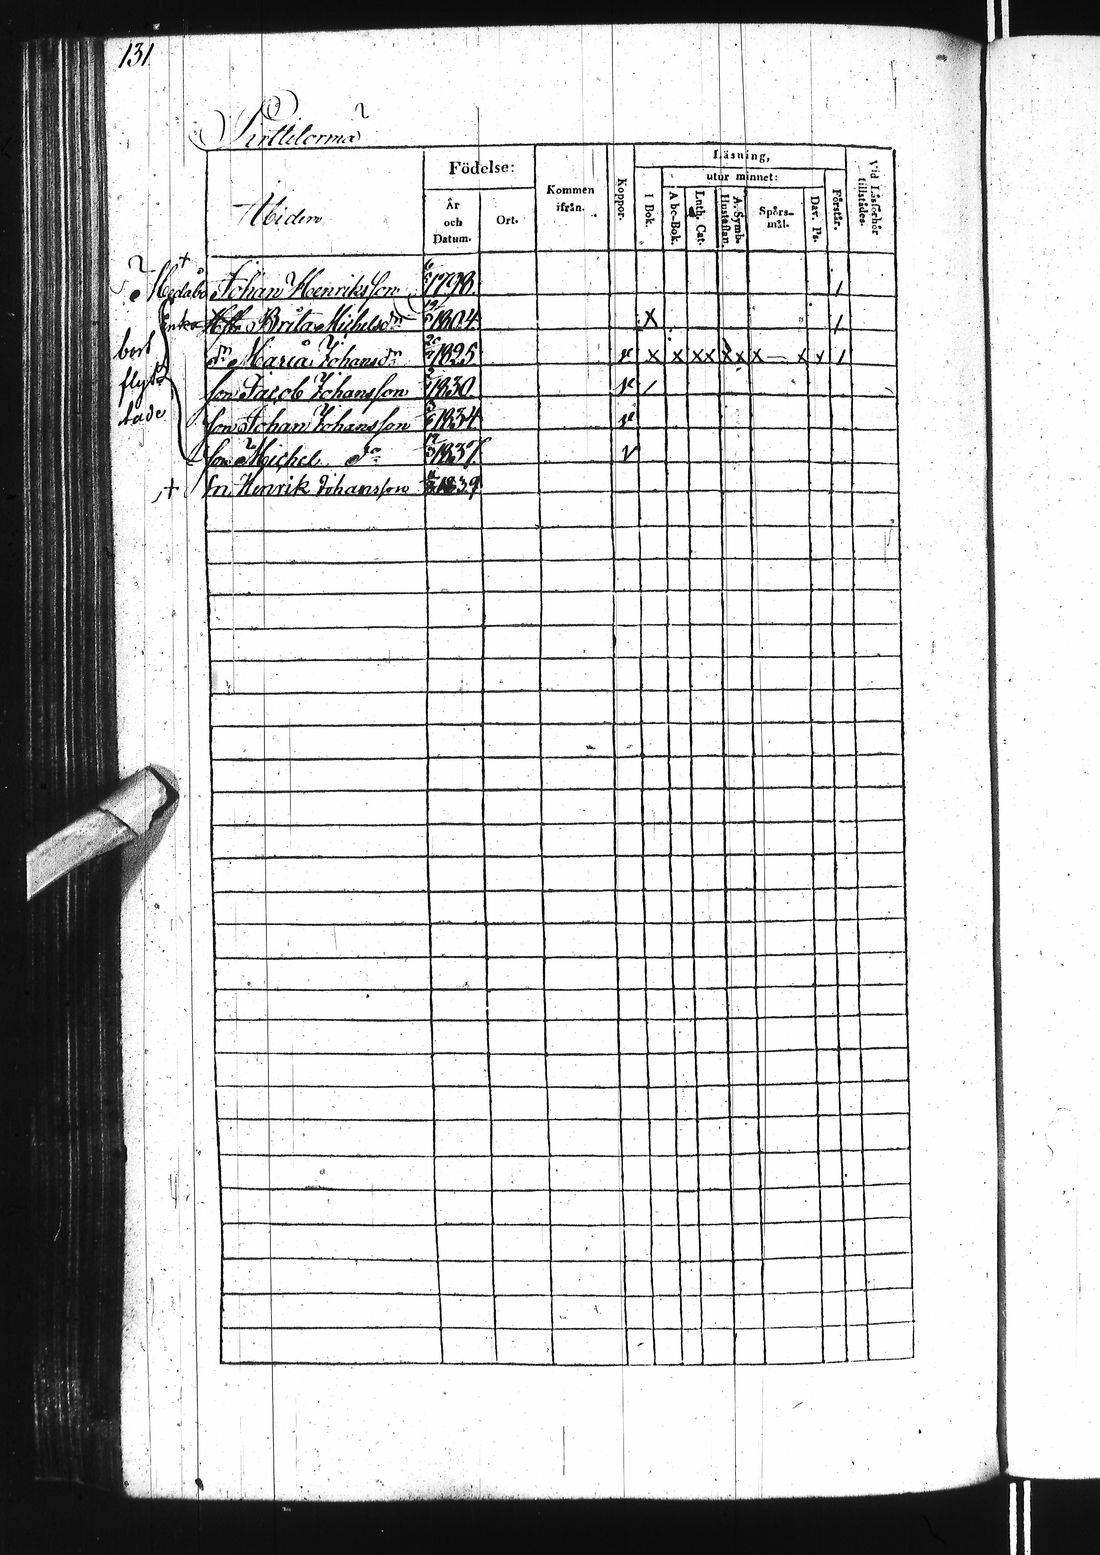 131
Pirttilormä
Hiden
Födelse:
År och Datum.
Ort.
Kommen ifrån.
Koppor.
Läsning,
utur minnet:
I Bok.
Abc-Bok.
Luth. Cat.
A. Symb. Hustaflan.
Spörs-mål.
Dav. Ps.
Förstår.
Vid Läsförhör tillstädes.
+ Johan Henriksson 1798 /
Enka Brita Michelsdr 1804 X /
dr Maria Johansdr 1825 v X X XX X X X — X X /
bort flyttade
son Jacob Johansson 1830 v /
son Johan Johansson 1834 v
son Michel Do 1837 v
+ sn Henrik Johansson 1839